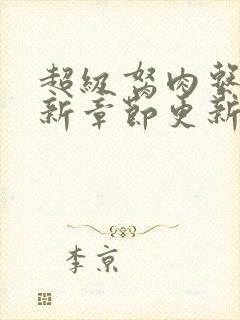 超级驽肉系
新章节更新
李京